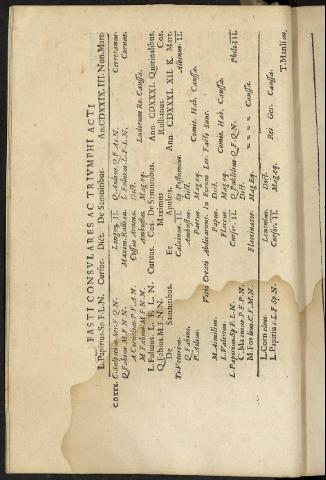 FASTI CONSVLARES AC TRIVMPHI ACTI
L. Papirius Sp. F. L. N. Cursor. Dict. De Samnitibus. An. CDXXIX. III. Non. Mart.
CDXXIX. C. Sulpicius Ser. F. Q. N. Longus. III. Q. Aulius. Q. F. Ai. N. Cerretanus.
Q. Fabius M. F. N. N. Maxim. Rullian. L. Fulvius L. F. L. N. Curvus.
A Cornelius P. F. A. N. Cossus Arvina. Dict.
M. Fabius M. F. N. N. Ambustus. Mag. eq. Ludorum Ro. Caussa.
L. Fuluius. L. F. L. N. Curuus. Cos. De Samnitibus. Ann. CDXXXI. Quirinalibus.
Q. Fabius M. F. N. N. Maximus Rullianus. Cos.
De Samnitibus. Et Apuleis, Ann. CDXXXI. XII. K. Mart.
T. Veturius. Caluinus. II. Sp. Postumius. Albinus. II.
Q. Fabius. Ambustus. Dict.
P. Aelius. Paetus. Mag. Eq. Comit. Hab. Caussa.
Vitio Creati Abdicarunt. In Eorum Loc. Facti Sunt.
M. Aemilius. Papus. Dict.
L. Valerius. Flaccus. Mag. eq. Comit. Hab. Caussa.
L. Papirius Sp. F. L. N. Cursor. II. Q. Publilius Q. F. Q. N. Philo. III.
C. Maenius P. F. P. N. Dict.
M. Foslius C. F. M. N. Flaccinator. Mag. Eq. Caussa.
L. Cornelius. Lentulus. Dict.
L. Papirius. L. F. Sp. N. Cursor. II. Mag. eq. Rei Ger. Caussa.
T. Manlius,